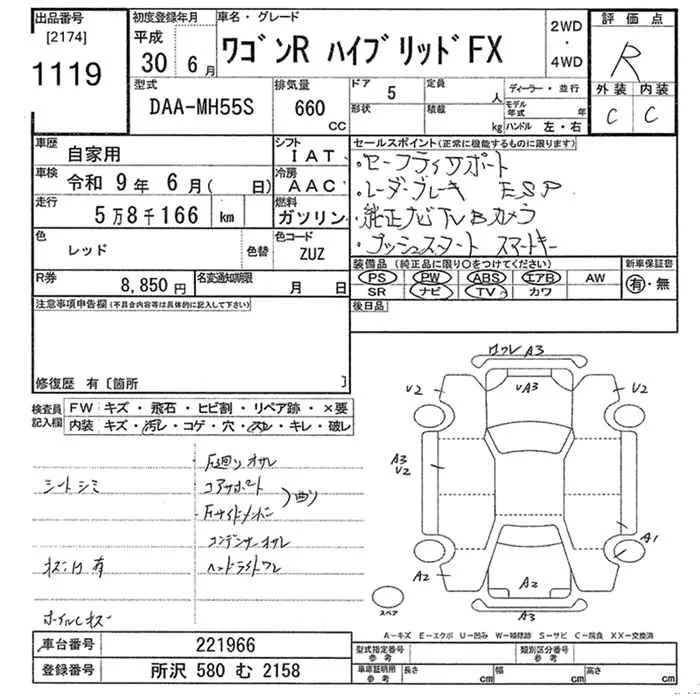 出品番号
[2174]
1119
初度登録年月
平成
30年 6月
車名・グレード
ワゴンR ハイブリッドFX
2WD
・
4WD
評価点
R
外装 内装
C C
型式
DAA-MH55S
排気量
660 CC
ドア 5
形状
定員 人
積載 kg
ディーラー・並行
モデル年式 年
ハンドル 左・右
車歴 自家用
シフト IAT
車検 令和 9年 6月( 日)
冷房 AAC
走行 5万8千166 km
燃料 ガソリン
色 レッド 色替
色コード ZUZ
R券 8,850円
名変通知期限 月 日
セールスポイント(正常に機能するものに限ります)
・セーフティサポート
・レーダーブレーキ ESP
・純正ナビTVBカメラ
・プッシュスタート スマートキー
装備品(純正品に限り○をつけてください)
新車保証書
PS PW ABS エアB AW
有・無
SR ナビ TV カワ
後日品
注意事項申告欄(不具合内容等は具体的に記入して下さい)
修復歴 有〔箇所 〕
検査員記入欄
FW キズ・飛石・ヒビ割・リペア跡・×要
内装 キズ・汚レ・コゲ・穴・スレ・キレ・破レ
シートシミ
ホイルCキズ
F廻りオサレ
コアサポート
Fサイドメンバー
曲り
コンデンサーオサレ
ヘッドライトワレ
ワレ A3
UA3
U2
U2
A3
U2
A1
A2
A2
A3
スペア
A-キズ E-エクボ U-凹み W-補修跡 S-サビ C-腐食 XX-交換済
車台番号 221966
登録番号 所沢 580 む 2158
型式指定番号 参考
類別区分番号 参考
車庫証明用 参考
長さ cm
幅 cm
高さ cm